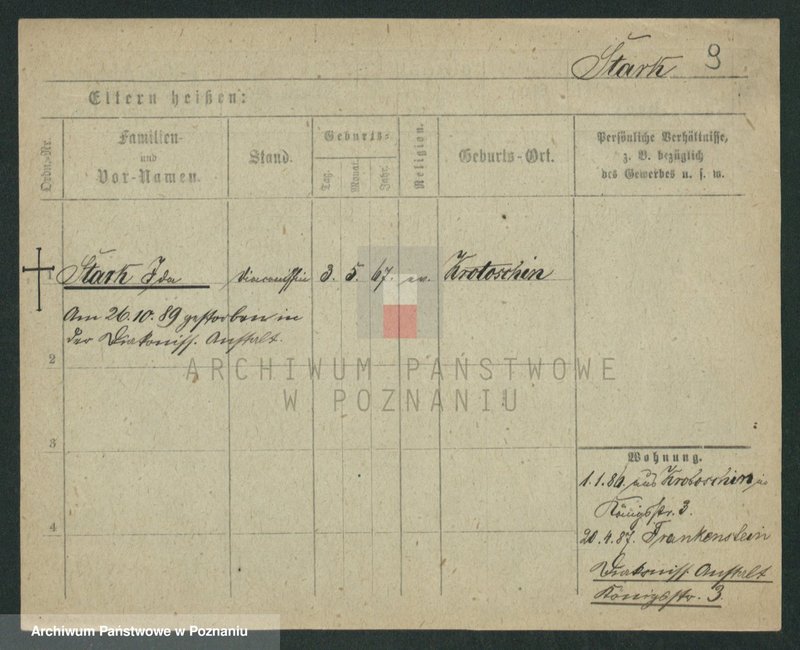 Stark 9
Eltern heißen:
Ordn.-Nr.
Familien- und Vor-Namen.
Stand.
Geburts-
Tag.
Monat.
Jahr.
Religion.
Geburts-Ort.
Persönliche Verhältnisse,
z. B. bezüglich
des Gewerbes u. s. w.
1 Stark Ida Diaconissin 3. 5. 67. ev. Krotoschin
Am 26.10.89 gestorben in
der Diakoniss. Anstalt.
2
ARCHIWUM PAŃSTWOWE
W POZNANIU
3
Wohnung.
1.1.86. aus Krotoschin in
Königsstr. 3.
4
20.4.87. Frankenstein
Diakoniss. Anstalt
Königsstr. 3
Archiwum Państwowe w Poznaniu